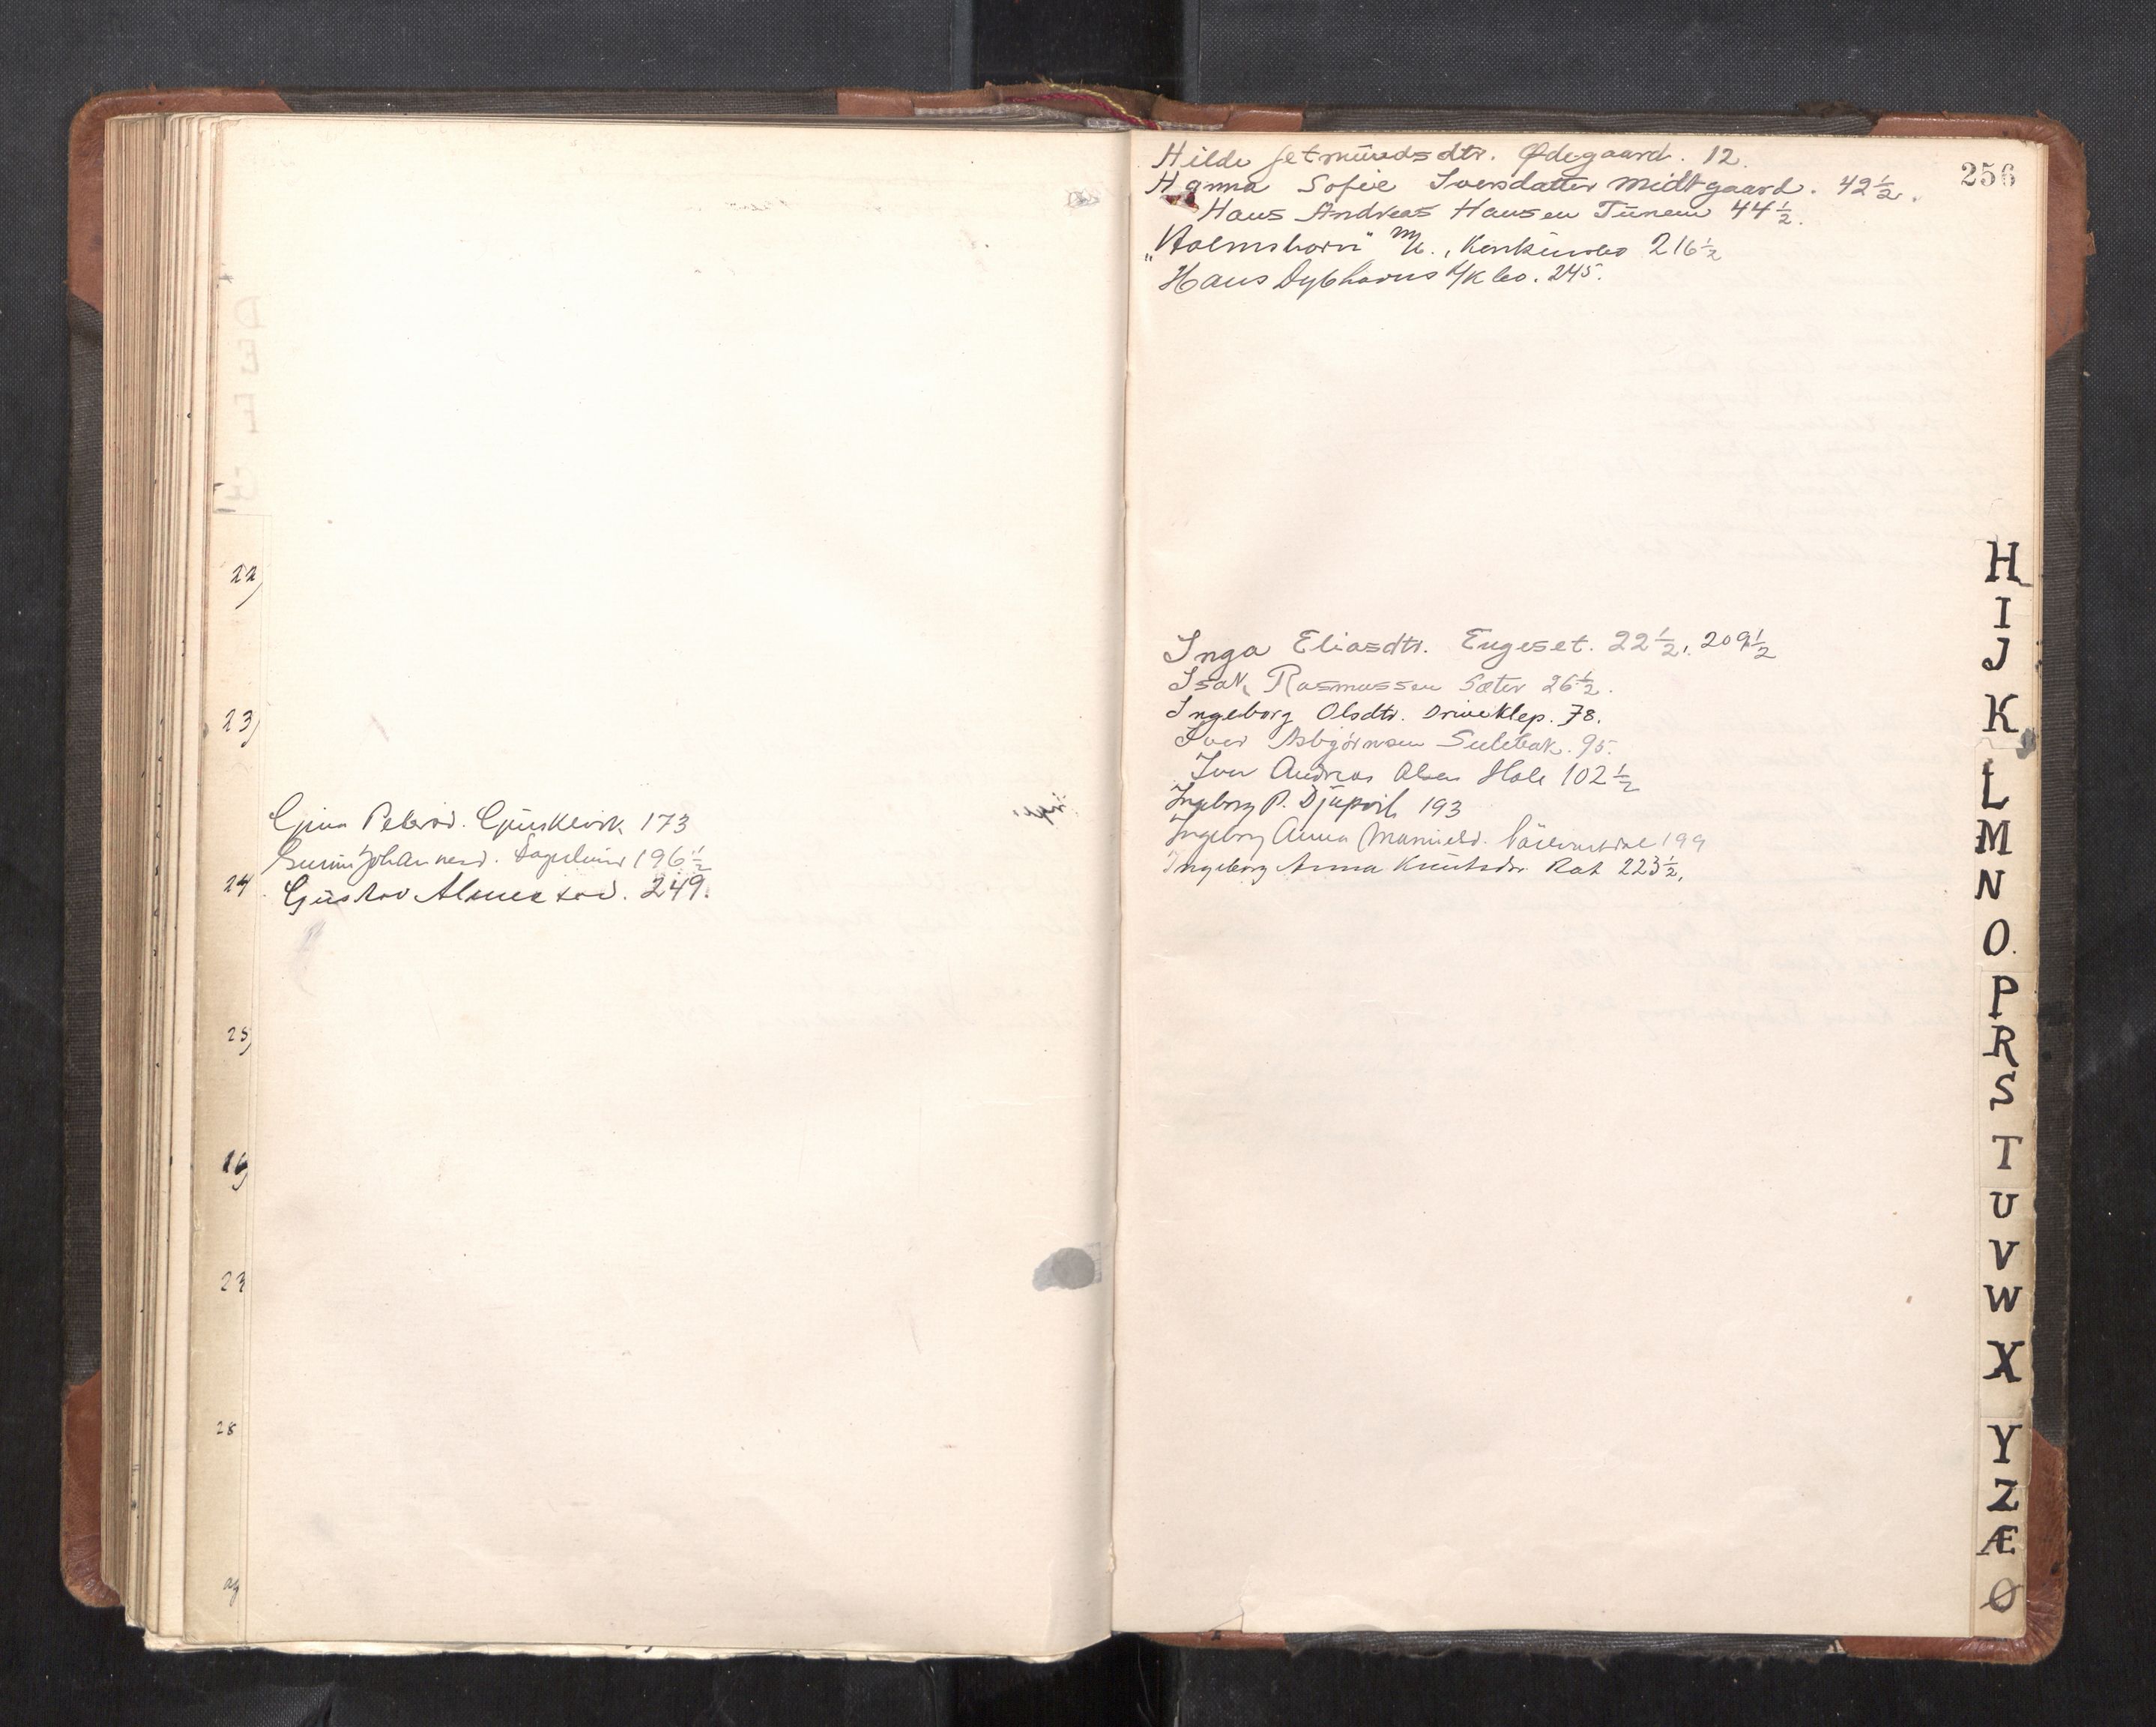 22)
23)
Gjina Petersd. Gjuskevik 173
Gunni Johannesd. Fagerlund 196 1/2
24
Gustav Alme 249.
25)
16)
23
28
Hilde Getmundsdtr. Ødegaard. 12.
256
Hanna Sofie Iversdatter Midtgaard. 42 1/2.
Hans Andreas Hansen Tunem 44 1/2.
"Holmshorn" M/K., 216 1/2
Hans Dybhavns 245.
Inga Eliasdtr. Engeset. 22 1/2, 209 1/2
Isak Rasmussen Sæter 26 1/2.
Ingeborg Olsdtr. Driveklep. 78.
Iver Asbjørnsen Sulebak. 95.
Iver Andreas Olsen Hole 102 1/2
Ingeborg P. Djupvik 193
Ingeborg Anna 199
Ingeborg Anna Knutsdr. Rak 223 1/2.
H
I
J
K
L
M
N
O
P
R
S
T
U
V
W
X
Y
Z
Æ
Ø